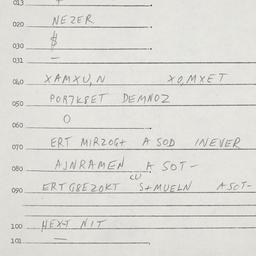 013 +
020 NEZER
030 $
031 –
040 XAMXU,N XO,MXET
050 POR7K8ET DEMNOZ
060 O
070 ERT MIRZOGT A SOD INEVER
080 AJNRAMEN A SOT–
CU
090 ERTG8EZOKT S+MUELN ASOT–
100 HEXT NIT
101 —